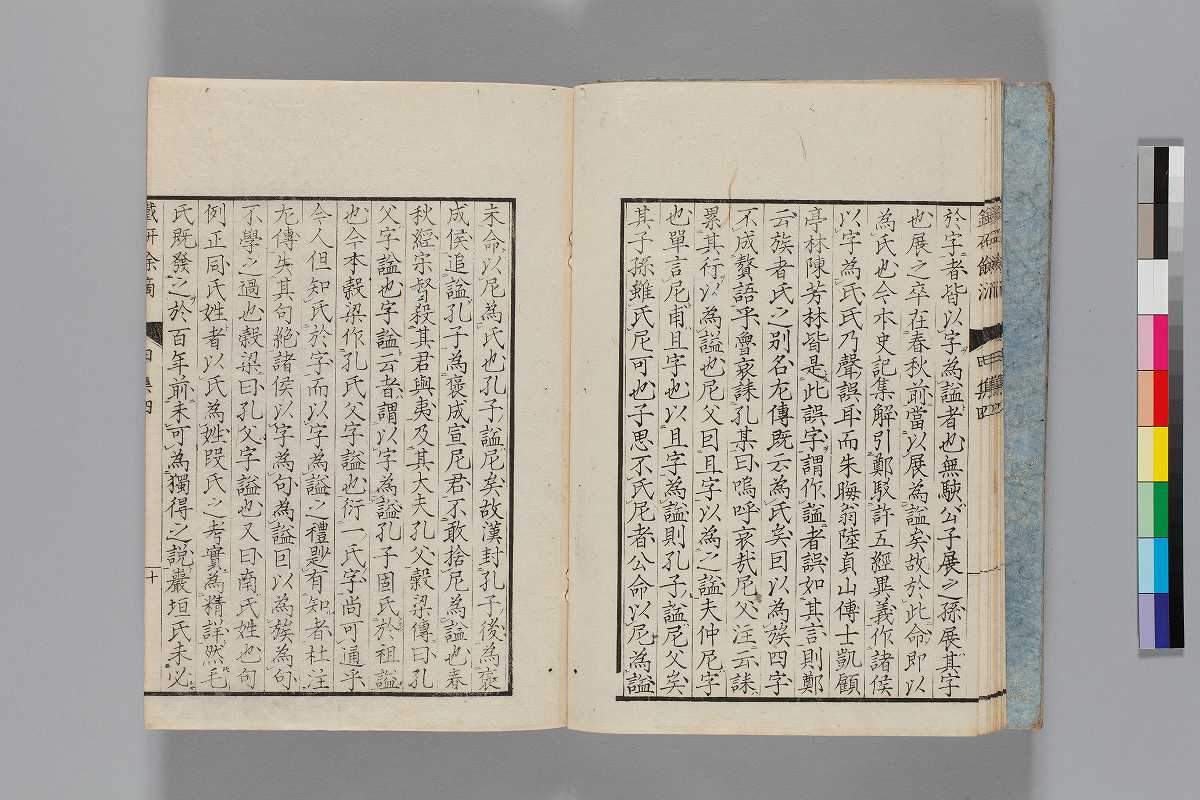 於字者皆以字為謚者也無駭公子展之孫展其字
也展之卒在春秋前當以展為謚矣故於此命即以
為氏也今本史記集解引鄭駁許五經異義作諸侯
以字為氏氏乃聲誤耳而朱晦翁陸貞山傳士凱顧
亭林陳芳林皆是此誤字謂作謚者誤如其言則鄭
云族者氏之別名左傳既云為氏矣曰以為族四字
不成贅語乎魯哀誄孔某曰嗚呼哀哉尼父注云誄
累其行以為謚也尼父曰且字以為之謚夫仲尼字
也單言尼甫且字也以且字為謚則孔子謚尼父矣
其子孫雖氏尼可也子思不氏尼者公命以尼為謚
未命以尼為氏也孔子謚尼矣故漢封孔子後為褒
成侯追謚孔子為褒成宣尼君不敢捨尼為謚也春
秋經宋督殺其君與夷及其大夫孔父穀梁傳曰孔
父字謚也字謚云者謂以字為謚孔子固氏於祖謚
也今本穀梁作孔氏父字謚也衍一氏字尚可通乎
今人但知氏於字而以字為謚之禮尟有知者杜注
左傳失其句絕諸侯以字為句為謚因以為族為句
不學之過也穀梁曰孔父字謚也又曰南氏姓也句
例正同氏姓者以氏為姓段氏之考實為精詳然毛
氏既發之於百年前未可為獨得之說巖垣氏未必